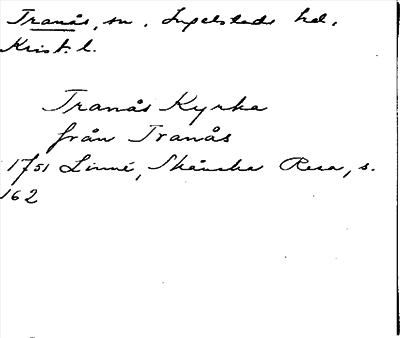 Tranås, sn. Ingelstads hd.
Krist. l.
Tranås Kyrka
från Tranås
1751 Linné, Skånska Resa, s.
162